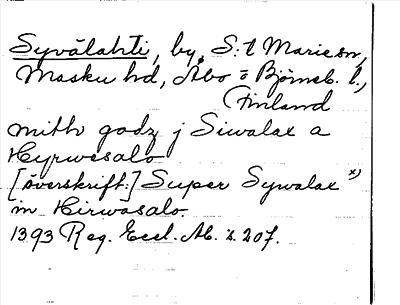 Syvälahti, by, S:t Marie sn,
Masku hd, Åbo o Björneb. l.,
(Finland
mith godz j Siwalax a
Hyrwesalo
[överskrift:] Super Sywalax x)
in Hirwasalo.
1393 Reg. Eccl. Ab. s. 207.